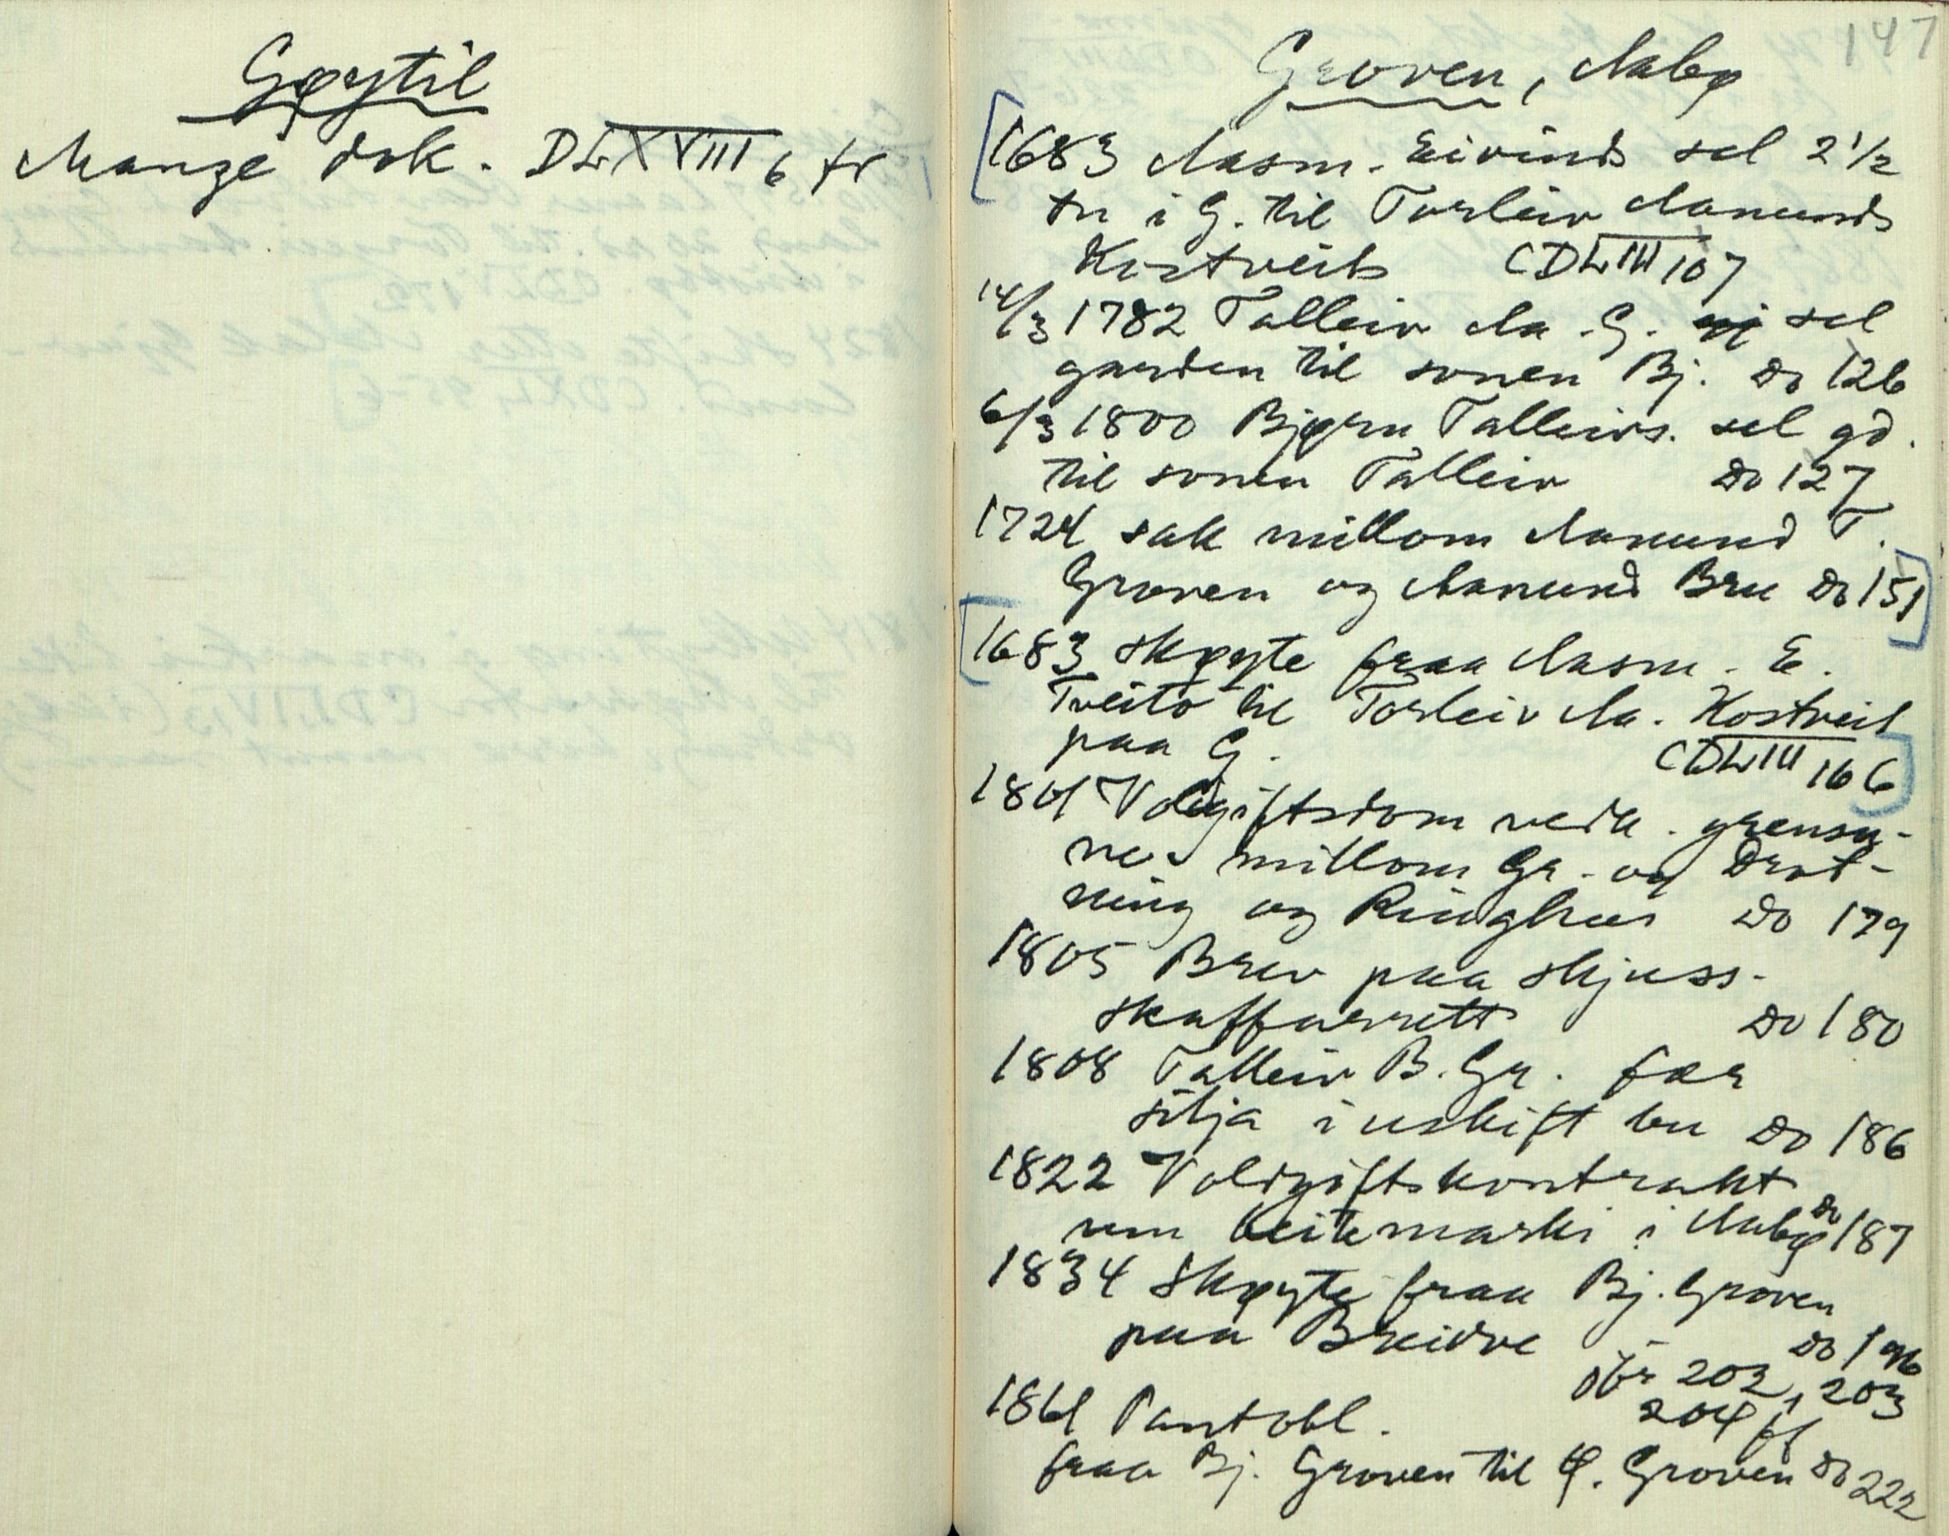 Gøytil
Mange dok. DLXVIII 6 fr
147
Groven, Aabø
1683 Aasm. Eivinds sel 2 1/2
tn i G. til Torleiv Aanunds
Kostveit CDLIII 107
14/3 1782 Talleiv Aa. G. sel
garden til sonen Bj. Do 126
6/3 1800 Bjørn Talleivs. sel gd.
til sonen Talleiv Do 127
1724 sak millom Aanund T.
Groven og Aanund Bru Do 151
1683 skøyte fraa Aasm. E.
Tveito til Torleiv Aa. Kostveit
paa G. CDLIII 166
1801 Voldgiftsdom vedk. grensu-
ne millom Gr. og Drot-
ning og Ringhus Do 179
1805 Brev paa skjuss-
skaffarrett Do 180
1808 Talleiv B. Gr. fær
sitja i uskift bu Do 186
1822 Voldgiftskontrakt
um beitemarki i Aabø Do 187
1834 Skøyte fraa Bj. Groven
paa Breidve Do 196
jfr 202, 203
204 ff
1861 Pantobl.
fraa Bj. Groven til Ø. Groven Do 222